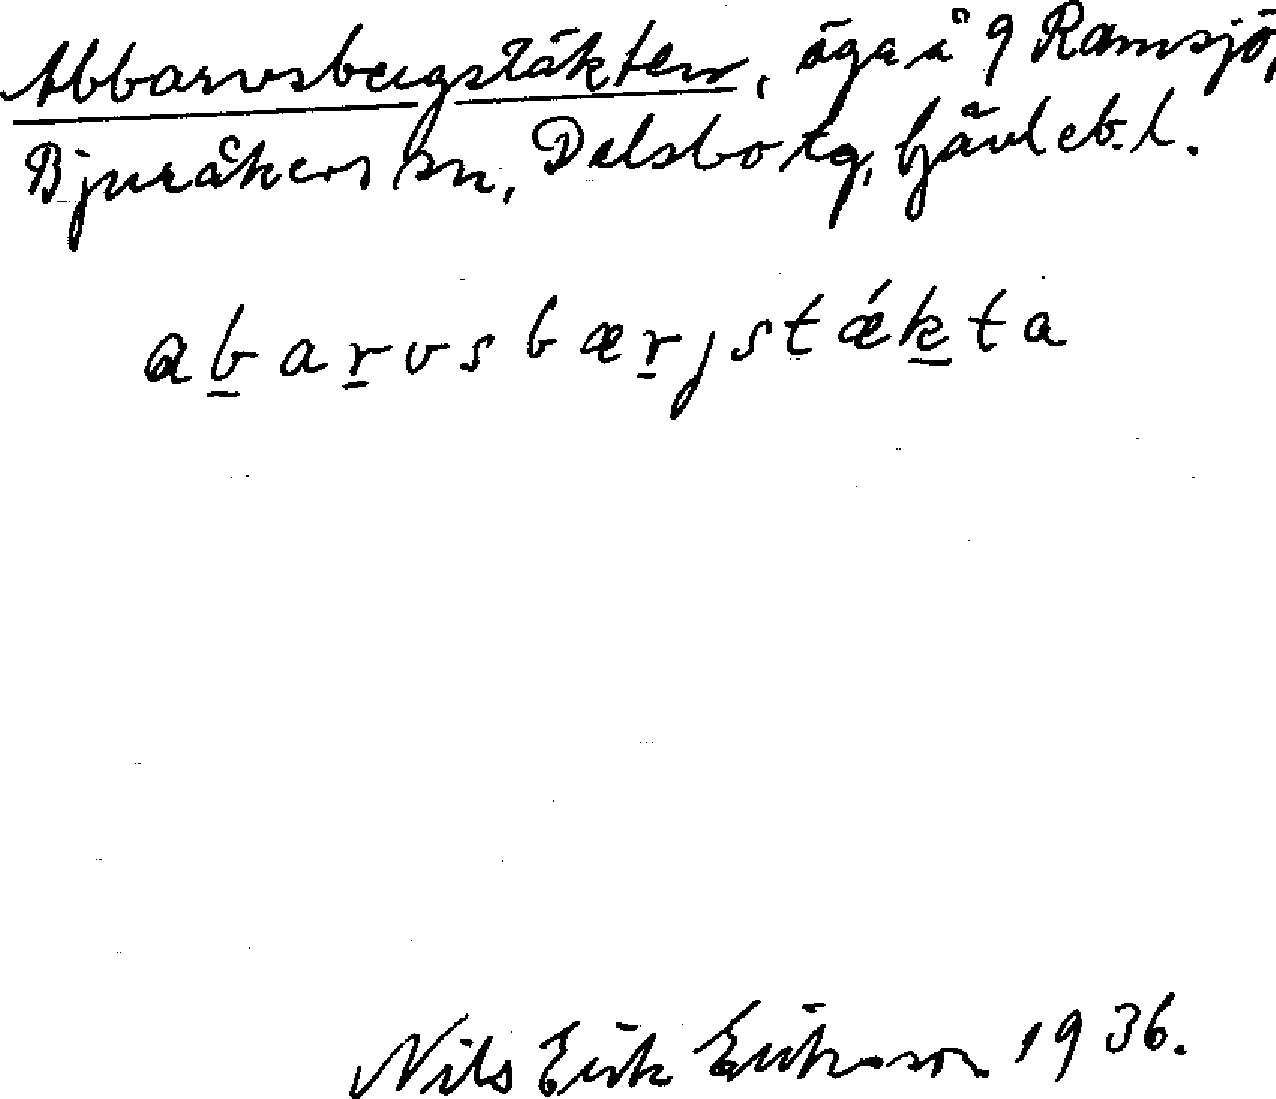 Abbarvsbergstäkten, äga å 9 Ramsjö,
Bjuråkers sn, Delsbo tg, Gävleb. l.
abarvsbærjstǽkta
Nils Erik Erikson 1936.